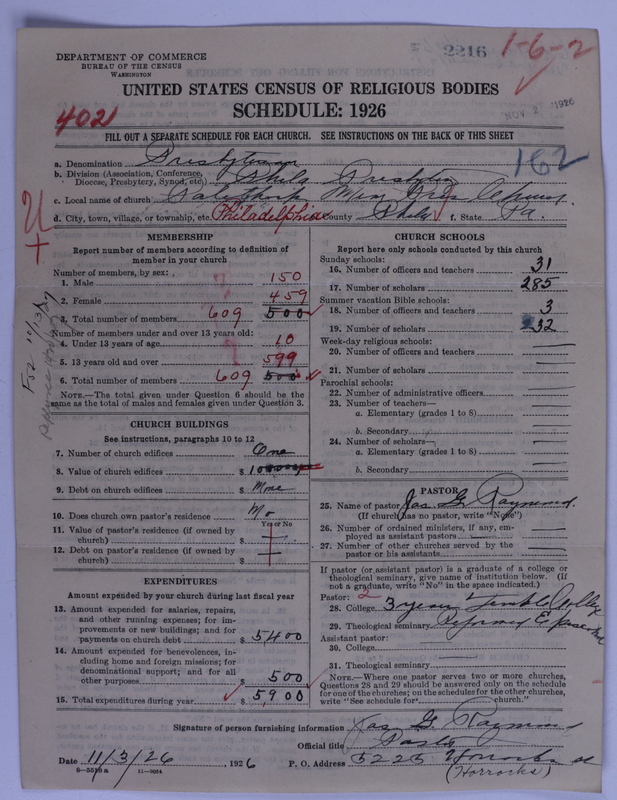 2216 1-6-2
DEPARTMENT OF COMMERCE
BUREAU OF THE CENSUS
WASHINGTON
UNITED STATES CENSUS OF RELIGIOUS BODIES
SCHEDULE: 1926
NOV 2 1926
402
FILL OUT A SEPARATE SCHEDULE FOR EACH CHURCH. SEE INSTRUCTIONS ON THE BACK OF THIS SHEET
a. Denomination Presbyterian
162
b. Division (Association, Conference, Diocese, Presbytery, Synod, etc.) Phila Presbytery
c. Local name of church Mem Pres Church
d. City, town, village, or township, etc. Philadelphia County Phila f. State Pa.
MEMBERSHIP
Report number of members according to definition of member in your church
Number of members, by sex:
1. Male 150
2. Female 459
3. Total number of members 609 500
Number of members under and over 13 years old:
4. Under 13 years of age 10
5. 13 years old and over 599
6. Total number of members 609 500
NOTE.—The total given under Question 6 should be the same as the total of males and females given under Question 3.
For 10/13/27
CHURCH BUILDINGS
See instructions, paragraphs 10 to 12
7. Number of church edifices One
8. Value of church edifices $
9. Debt on church edifices $ None
10. Does church own pastor's residence No
Yes or No
11. Value of pastor's residence (if owned by church) $
12. Debt on pastor's residence (if owned by church) $
EXPENDITURES
Amount expended by your church during last fiscal year
13. Amount expended for salaries, repairs, and other running expenses; for improvements or new buildings; and for payments on church debt $ 5,400
14. Amount expended for benevolences, including home and foreign missions; for denominational support; and for all other purposes $ 500
15. Total expenditures during year $ 5900
CHURCH SCHOOLS
Report here only schools conducted by this church
Sunday schools:
16. Number of officers and teachers 31
17. Number of scholars 285
Summer vacation Bible schools:
18. Number of officers and teachers 3
19. Number of scholars 232
Week-day religious schools:
20. Number of officers and teachers
21. Number of scholars
Parochial schools:
22. Number of administrative officers
23. Number of teachers—
a. Elementary (grades 1 to 8)
b. Secondary
24. Number of scholars—
a. Elementary (grades 1 to 8)
b. Secondary
PASTOR
25. Name of pastor Jas G. Raymond
(If church has no pastor, write "None")
26. Number of ordained ministers, if any, employed as assistant pastors
27. Number of other churches served by the pastor or his assistants
If pastor (or assistant pastor) is a graduate of a college or theological seminary, give name of institution below. (If not a graduate, write "No" in the space indicated.)
Pastor: 2
28. College 3 years Temple College
29. Theological seminary Reformed Episcopal
Assistant pastor:
30. College
31. Theological seminary
NOTE.—Where one pastor serves two or more churches, Questions 28 and 29 should be answered only on the schedule for one of the churches; on the schedules for the other churches, write "See schedule for church."
Signature of person furnishing information Jas G. Raymond
Official title Pastor
Date 11/3/26, 1926 P. O. Address 5225 Horrocks st
8-5519 a 11-9054 (Horrocks)